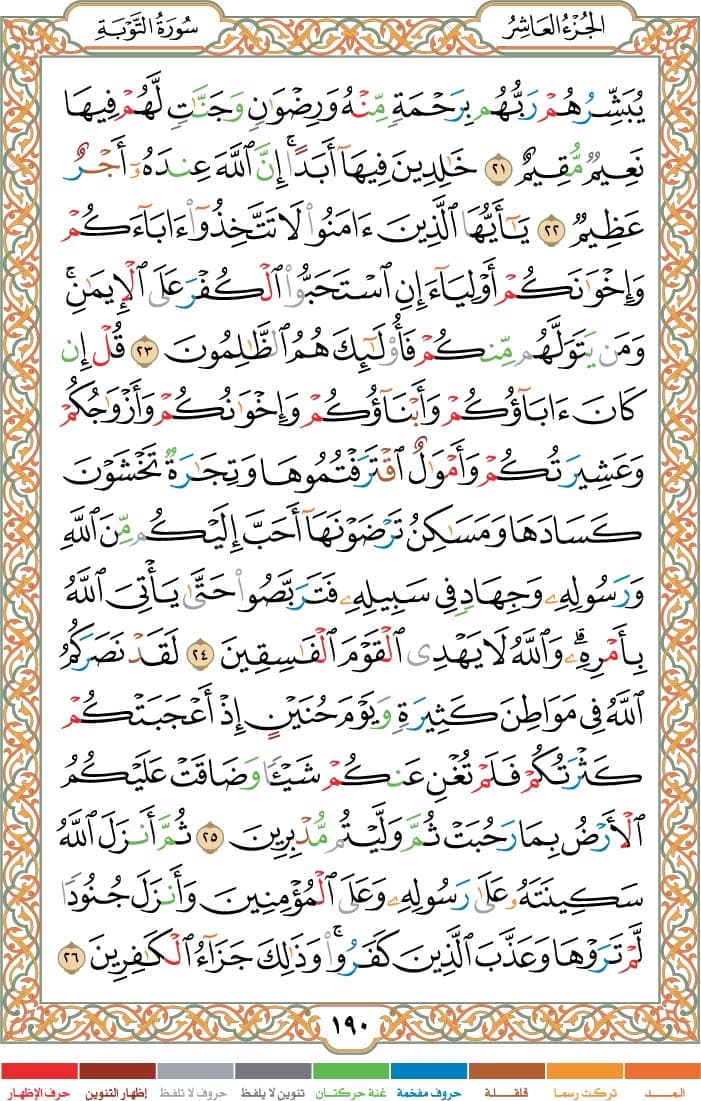 الجُزْءُ العَاشِرُ
سُورَةُ التَّوْبَةِ
يُبَشِّرُهُمْ رَبُّهُم بِرَحْمَةٍ مِّنْهُ وَرِضْوَٰنٍ وَجَنَّـٰتٍ لَّهُمْ فِيهَا
نَعِيمٌ مُّقِيمٌ ٢١ خَـٰلِدِينَ فِيهَآ أَبَدًا ۚ إِنَّ ٱللَّهَ عِندَهُۥٓ أَجْرٌ
عَظِيمٌ ٢٢ يَـٰٓأَيُّهَا ٱلَّذِينَ ءَامَنُوا۟ لَا تَتَّخِذُوٓا۟ ءَابَآءَكُمْ
وَإِخْوَٰنَكُمْ أَوْلِيَآءَ إِنِ ٱسْتَحَبُّوا۟ ٱلْكُفْرَ عَلَى ٱلْإِيمَـٰنِ ۚ
وَمَن يَتَوَلَّهُم مِّنكُمْ فَأُو۟لَـٰٓئِكَ هُمُ ٱلظَّـٰلِمُونَ ٢٣ قُلْ إِن
كَانَ ءَابَآؤُكُمْ وَأَبْنَآؤُكُمْ وَإِخْوَٰنُكُمْ وَأَزْوَٰجُكُمْ
وَعَشِيرَتُكُمْ وَأَمْوَٰلٌ ٱقْتَرَفْتُمُوهَا وَتِجَـٰرَةٌ تَخْشَوْنَ
كَسَادَهَا وَمَسَـٰكِنُ تَرْضَوْنَهَآ أَحَبَّ إِلَيْكُم مِّنَ ٱللَّهِ
وَرَسُولِهِۦ وَجِهَادٍ فِى سَبِيلِهِۦ فَتَرَبَّصُوا۟ حَتَّىٰ يَأْتِىَ ٱللَّهُ
بِأَمْرِهِۦ ۗ وَٱللَّهُ لَا يَهْدِى ٱلْقَوْمَ ٱلْفَـٰسِقِينَ ٢٤ لَقَدْ نَصَرَكُمُ
ٱللَّهُ فِى مَوَاطِنَ كَثِيرَةٍ وَيَوْمَ حُنَيْنٍ إِذْ أَعْجَبَتْكُمْ
كَثْرَتُكُمْ فَلَمْ تُغْنِ عَنكُمْ شَيْـًٔا وَضَاقَتْ عَلَيْكُمُ
ٱلْأَرْضُ بِمَا رَحُبَتْ ثُمَّ وَلَّيْتُم مُّدْبِرِينَ ٢٥ ثُمَّ أَنزَلَ ٱللَّهُ
سَكِينَتَهُۥ عَلَىٰ رَسُولِهِۦ وَعَلَى ٱلْمُؤْمِنِينَ وَأَنزَلَ جُنُودًا
لَّمْ تَرَوْهَا وَعَذَّبَ ٱلَّذِينَ كَفَرُوا۟ ۚ وَذَٰلِكَ جَزَآءُ ٱلْكَـٰفِرِينَ ٢٦
١٩٠
المـــد تركت رسما قلقـلة حروف مفخمة غنة حركتان تنوين لا يلفظ حروف لا تلفظ إظهار التنوين حرف الإظهار